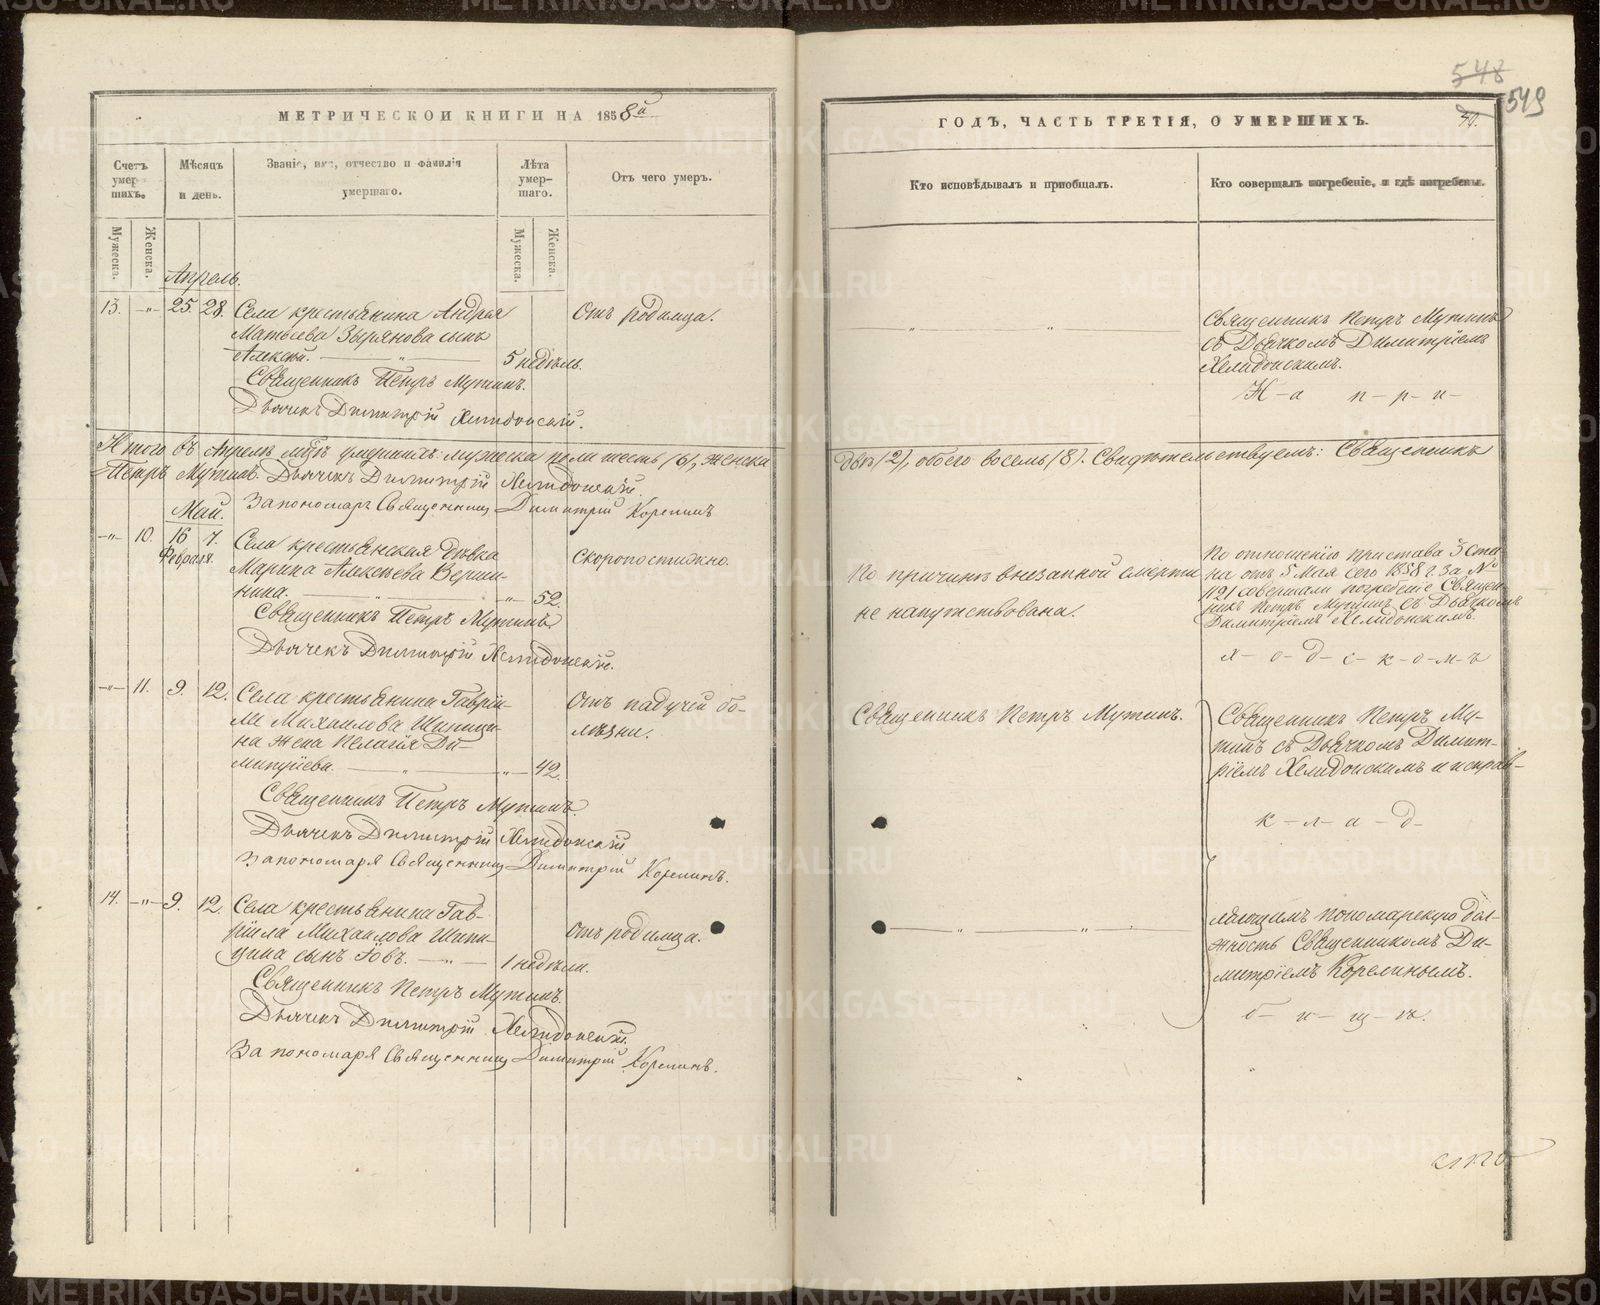 МЕТРИЧЕСКОЙ КНИГИ НА 1858й
Счетъ умершихъ.
Мѣсяцъ и день.
Званіе, имя, отчество и фамилія умершаго.
Лѣта умершаго.
Отъ чего умеръ.
Мужеска.
Женска.
Мужеска.
Женска.
Апрель.
13. -"- 25. 28. Села крестьянина Андрея
Матвѣева Зырянова сынъ
Алексѣй. 5 недѣль.
Отъ родимца.
Священникъ Петръ Мутинъ.
Дьячекъ Димитрій Хелидонскій.
Итого въ Апрелѣ мцѣ умершихъ: мужеска пола шесть (6), женска
Петръ Мутинъ. Дьячекъ Димитрій Хелидонскій.
За пономаря Священникъ Димитрій Корелинъ
Май.
-"- 10. 16 7. Села крестьянская дѣвка
Февраля.
Марина Алексѣева Верши-
нина. -"- 52.
Скоропостижно.
Священникъ Петръ Мутинъ.
Дьячекъ Димитрій Хелидонскій.
-"- 11. 9. 12. Села крестьянина Гаврі-
ла Михаилова Шипицы-
на жена Пелагія Ди-
митріева. -"- 42.
Отъ падучей бо-
лѣзни.
Священникъ Петръ Мутинъ.
Дьячекъ Димитрій Хелидонскій
За пономаря Священникъ Димитрій Корелинъ.
14. -"- 9. 12. Села крестьянина Гав-
ріила Михаилова Шипи-
цина сынъ Іовъ. 1 недѣли.
Отъ родимца.
Священникъ Петръ Мутинъ.
Дьячекъ Димитрій Хелидонскій.
За пономаря Священникъ Димитрій Корелинъ.
548
549
ГОДЪ, ЧАСТЬ ТРЕТІЯ, О УМЕРШИХЪ.
Кто исповѣдывалъ и приобщалъ.
Кто совершалъ погребеніе, и гдѣ погребены.
Священникъ Петръ Мутинъ
съ Дьячкомъ Димитріемъ
Хелидонскимъ.
Н-а п-р-и-
двѣ (2), обоего восемь (8). Свидѣтельствуемъ: Священникъ
По причинѣ внезапной смерти
не напутствована.
По отношенію пристава 3 Ста-
на отъ 5 Мая сего 1858 г. за №
1191 совершали погребеніе Священ-
никъ Петръ Мутинъ съ Дьячкомъ
Димитріемъ Хелидонскимъ.
х-о-д-с-к-о-м-ъ
Священникъ Петръ Мутинъ.
Священникъ Петръ Му-
тинъ съ Дьячкомъ Димит-
ріемъ Хелидонскимъ и исправ-
к-л-а-д-
ляющимъ пономарскую дол-
жность Священникомъ Ди-
митріемъ Корелинымъ.
б-и-щ-ѣ.
METRIKI.GASO-URAL.RU